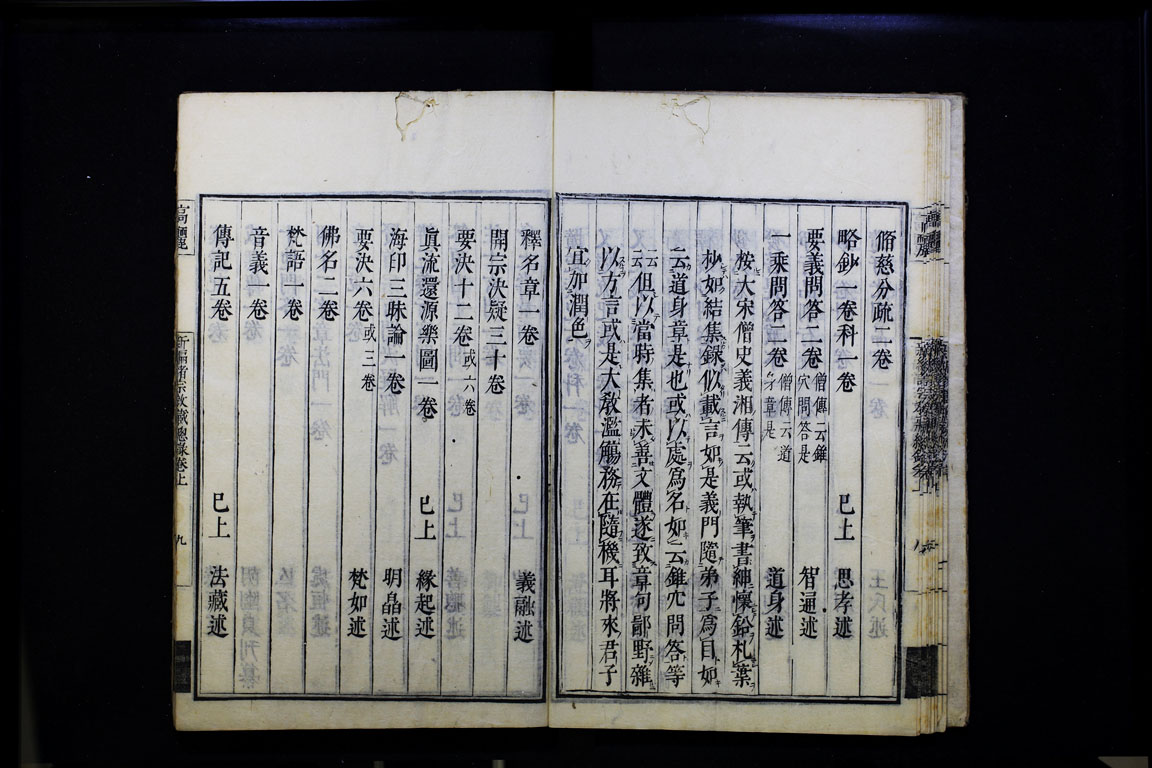 脩慈分疏二卷
略鈔一卷科一卷 已上 思孝述
要義問答二卷 僧傳云錐穴問答是 智通述
一乘問答二卷 僧傳云道身章是 道身述
桉大宋僧史義湘傳云或執筆書紳懷鉛札葉
抄如結集錄似載言如是義門隨弟子爲目如
云道身章是也或以處爲名如云錐穴問答等
云云但以當時集者未善文體遂致章句鄙野雜
以方言或是大教濫觴務在隨機耳將來君子
宜加潤色
釋名章一卷
開宗決疑三十卷 義融述
要決十二卷或六卷
眞流還源樂圖一卷 已上 緣起述
海印三昧論一卷 明皛述
要決六卷或三卷 梵如述
佛名二卷
梵語一卷
音義一卷
傳記五卷 已上 法藏述
新編諸宗教藏總錄卷上
九